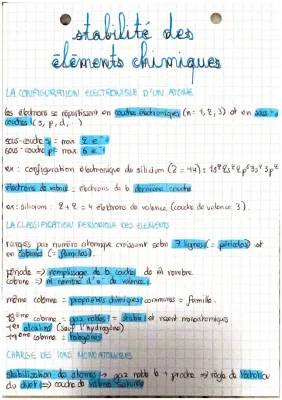 stabilité des
éléments chimiques
LA CONFIGURATION ELECTRONIQUE D'UN ATOME
les électrons se répartissent en couches électroniques (n = 1, 2, 3) et en sous-
couches (s, p, d, ...)
sous-couche s = max 2 e⁻
sous-couche p = max 6 e⁻
ex : configuration électronique du silicium (Z = 14) : 1s² 2s² 2p⁶ 3s² 3p²
électrons de valence : électrons de la dernière couche
ex : silicium : 2 + 2 = 4 électrons de valence (couche de valence 3).
LA CLASSIFICATION PERIODIQUE DES ELEMENTS
rangés par numéro atomique croissant selon 7 lignes (= périodes) et
en colonnes (= familles).
période => remplissage de la couche de m nombre
colonne => m nombre d'e⁻ de valence
même colonne = propriétés chimiques communes = famille.
18ème colonne = gaz nobles = stable et restent monoatomiques
1er alcalins (sauf l'hydrogène)
17ème colonne = halogènes
CHARGE DES IONS MONOATOMIQUES
stabilisation des atomes → gaz noble le + proche => règle de l'octet ou
du duet => couche de valence saturée